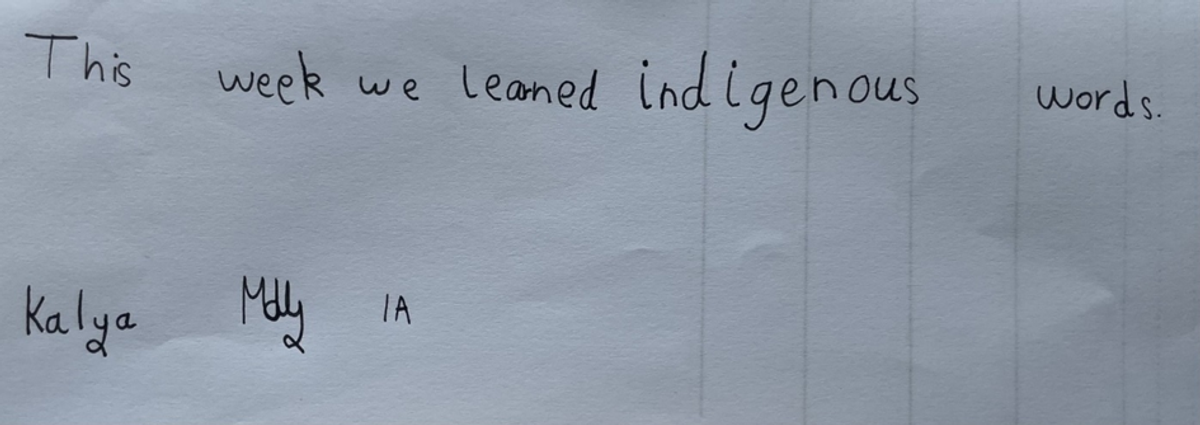 This week we learned indigenous words.
Kalya 1A